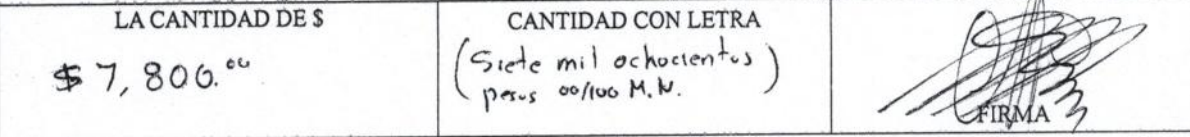 LA CANTIDAD DE $
$ 7,800.00
CANTIDAD CON LETRA
(Siete mil ochocientos
pesos 00/100 M.N.)
FIRMA